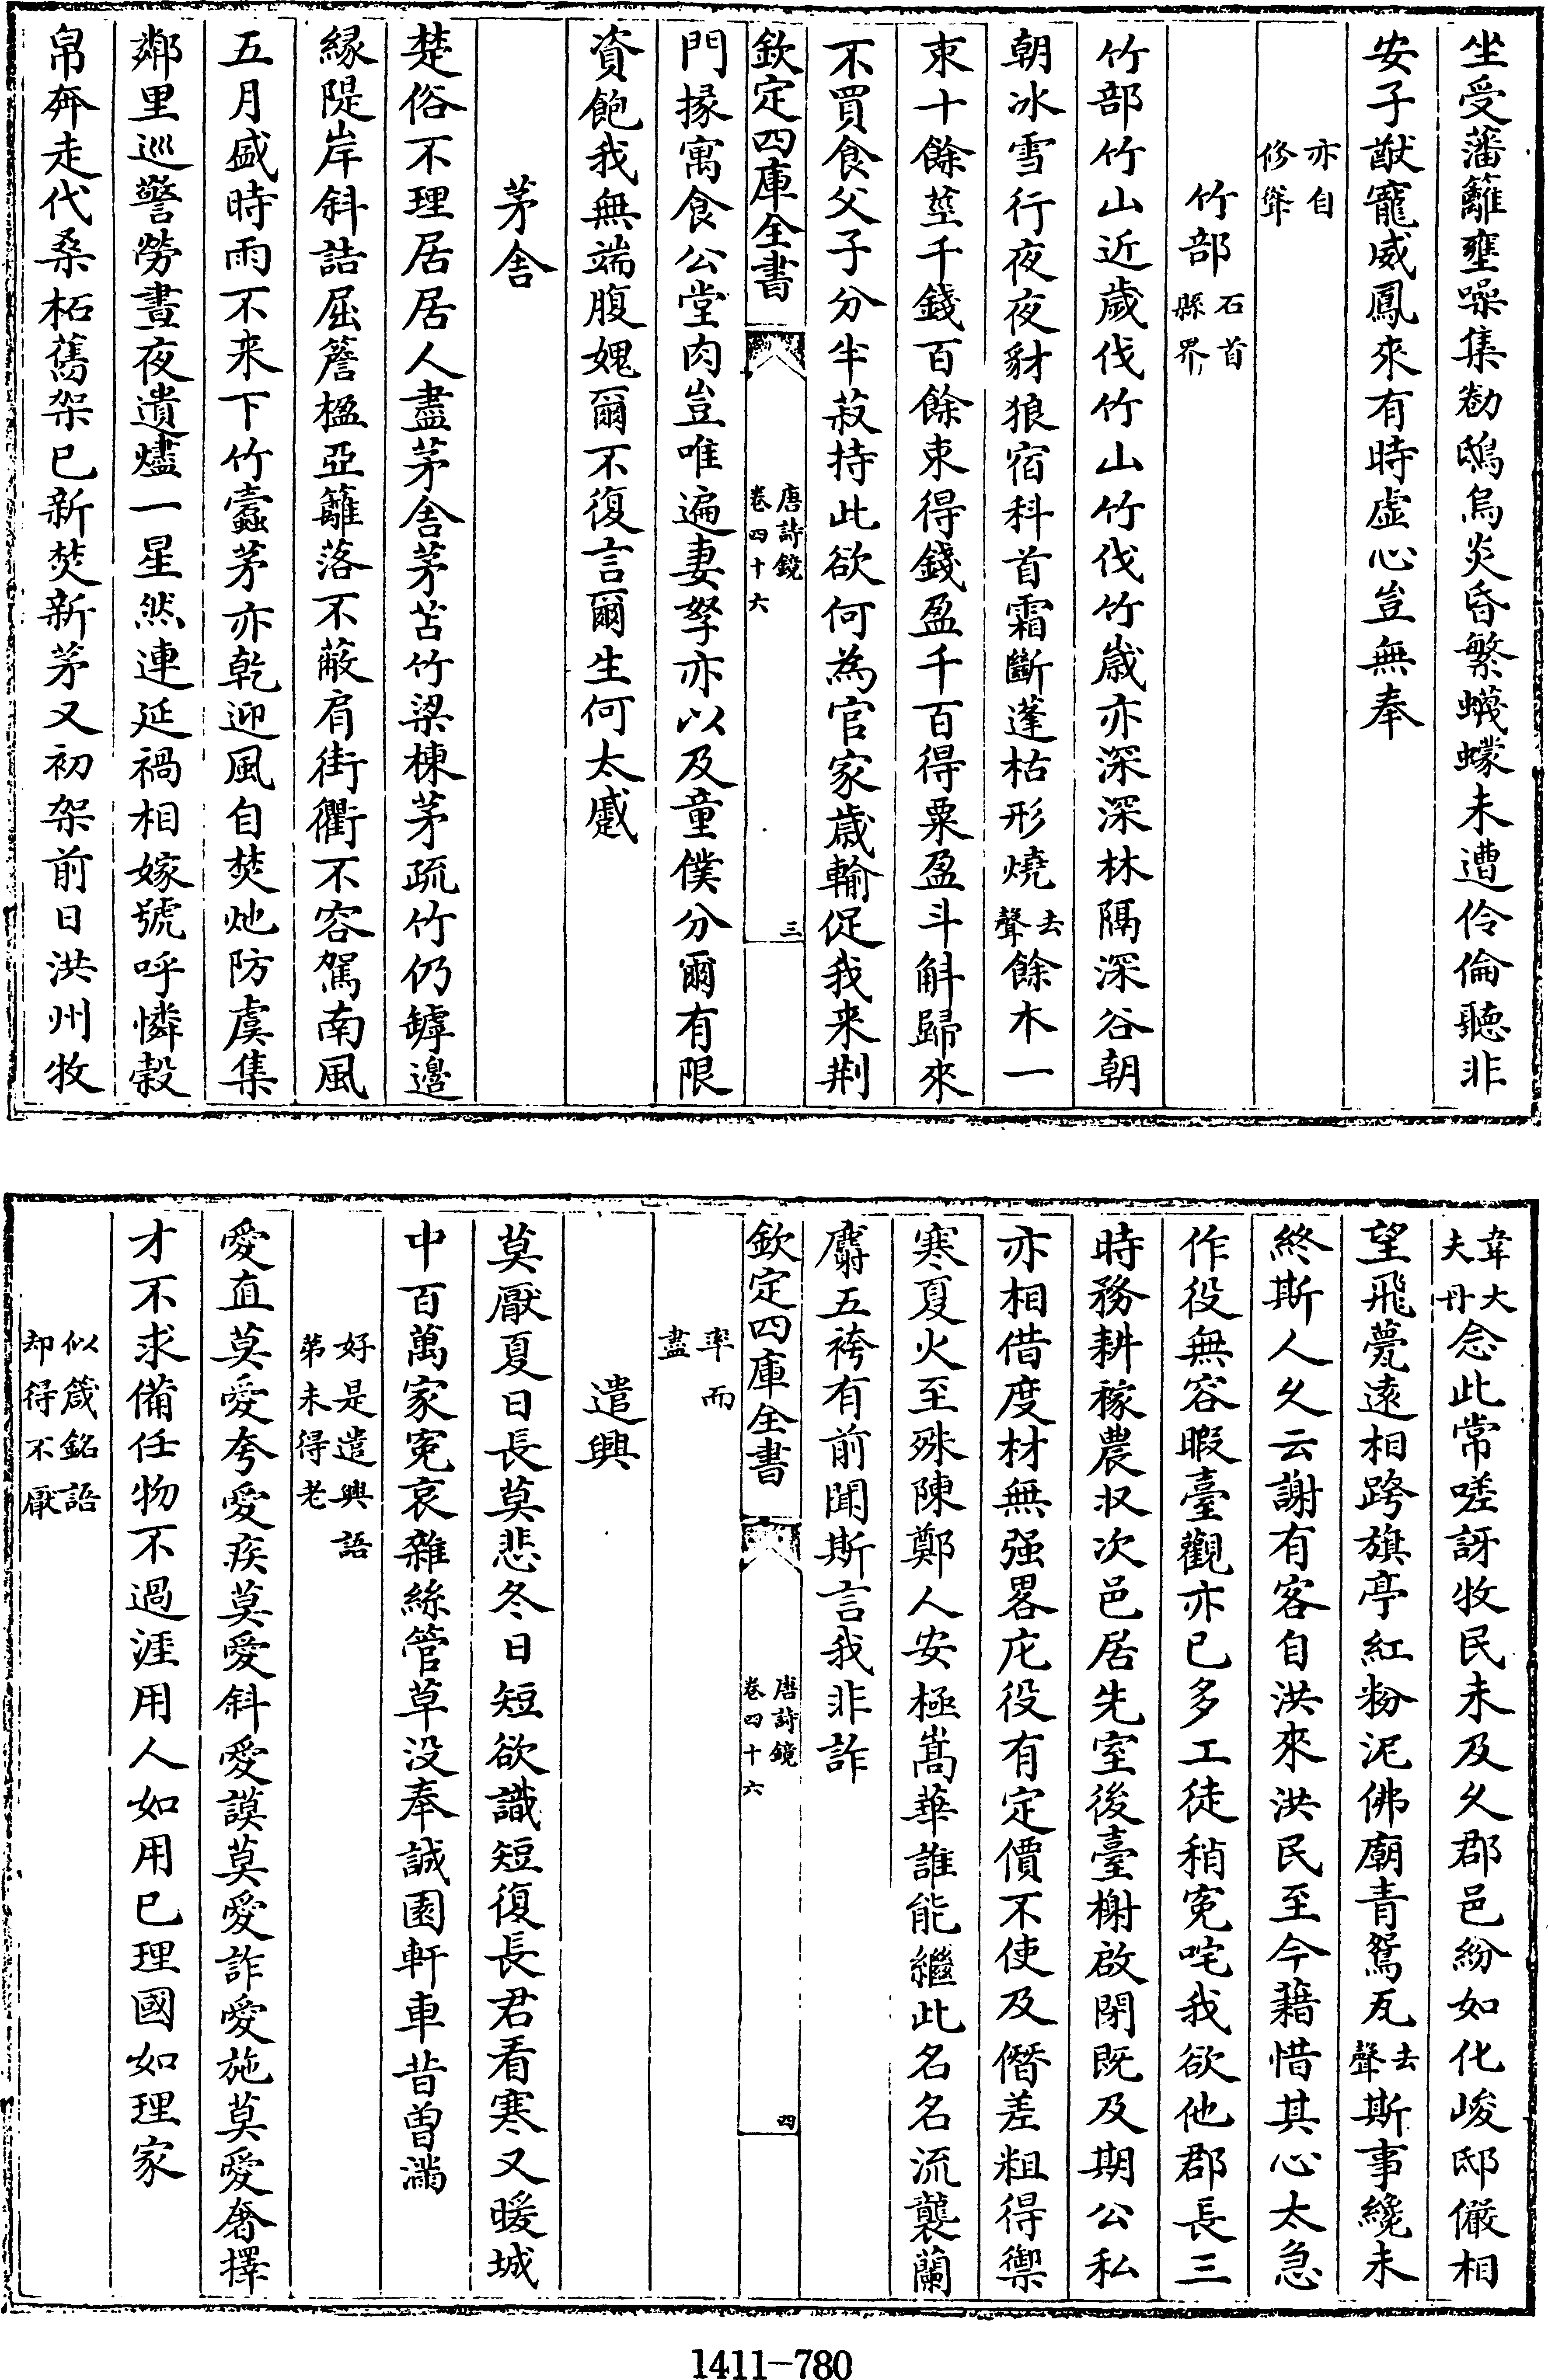 坐受藩籬壅噪集勸鴟烏炎昏繁蠛蠓未遭伶倫聽非
安子猷寵威鳳來有時虚心豈無奉
亦自
修聳
竹部石首
縣界
竹部竹山近歲伐竹山竹伐竹歲亦深深林隔深谷朝
朝冰雪行夜夜豺狼宿科首霜斷蓬枯形燒去
聲餘木一
束十餘莖千錢百餘束得錢盈千百得粟盈斗斛歸來
不買食父子分半菽持此欲何為官家歲輸促我来荆
欽定四庫全書
唐詩鏡
卷四十六
三
門掾寓食公堂肉豈唯遍妻孥亦以及童僕分爾有限
資飽我無端腹媿爾不復言爾生何太慼
茅舍
楚俗不理居居人盡茅舍茅苫竹梁棟茅疏竹仍罅邊
縁隄岸斜詰屈簷楹亞籬落不蔽肩街衢不容駕南風
五月盛時雨不来下竹蠹茅亦乾迎風自焚灺防虞集
鄰里巡警勞晝夜遺燼一星然連延禍相嫁號呼憐榖
帛奔走代桑柘舊架已新焚新茅又初架前日洪州牧
韋大
夫丹念此常嗟訝牧民未及久郡邑紛如化峻邸儼相
望飛甍逺相跨旗亭紅粉泥佛廟青鴛瓦去
聲斯事纔未
終斯人久云謝有客自洪來洪民至今藉惜其心太急
作役無容暇臺觀亦已多工徒稍寃咤我欲他郡長三
時務耕稼農収次邑居先室後臺榭啟閉既及期公私
亦相借度材無强畧庀役有定價不使及僭差粗得禦
寒夏火至殊陳鄭人安極嵩華誰能繼此名名流襲蘭
麝五袴有前聞斯言我非詐
欽定四庫全書
唐詩鏡
卷四十六
四
率而
盡
遣興
莫厭夏日長莫悲冬日短欲識短復長君看寒又暖城
中百萬家寃哀雜絲管草没奉誠園軒車昔曽滿
好是遣興語
苐未得老
愛直莫愛夸愛疾莫愛斜愛謨莫愛詐愛施莫愛奢擇
才不求備任物不過涯用人如用已理國如理家
似箴銘語
却得不厭
1411-780